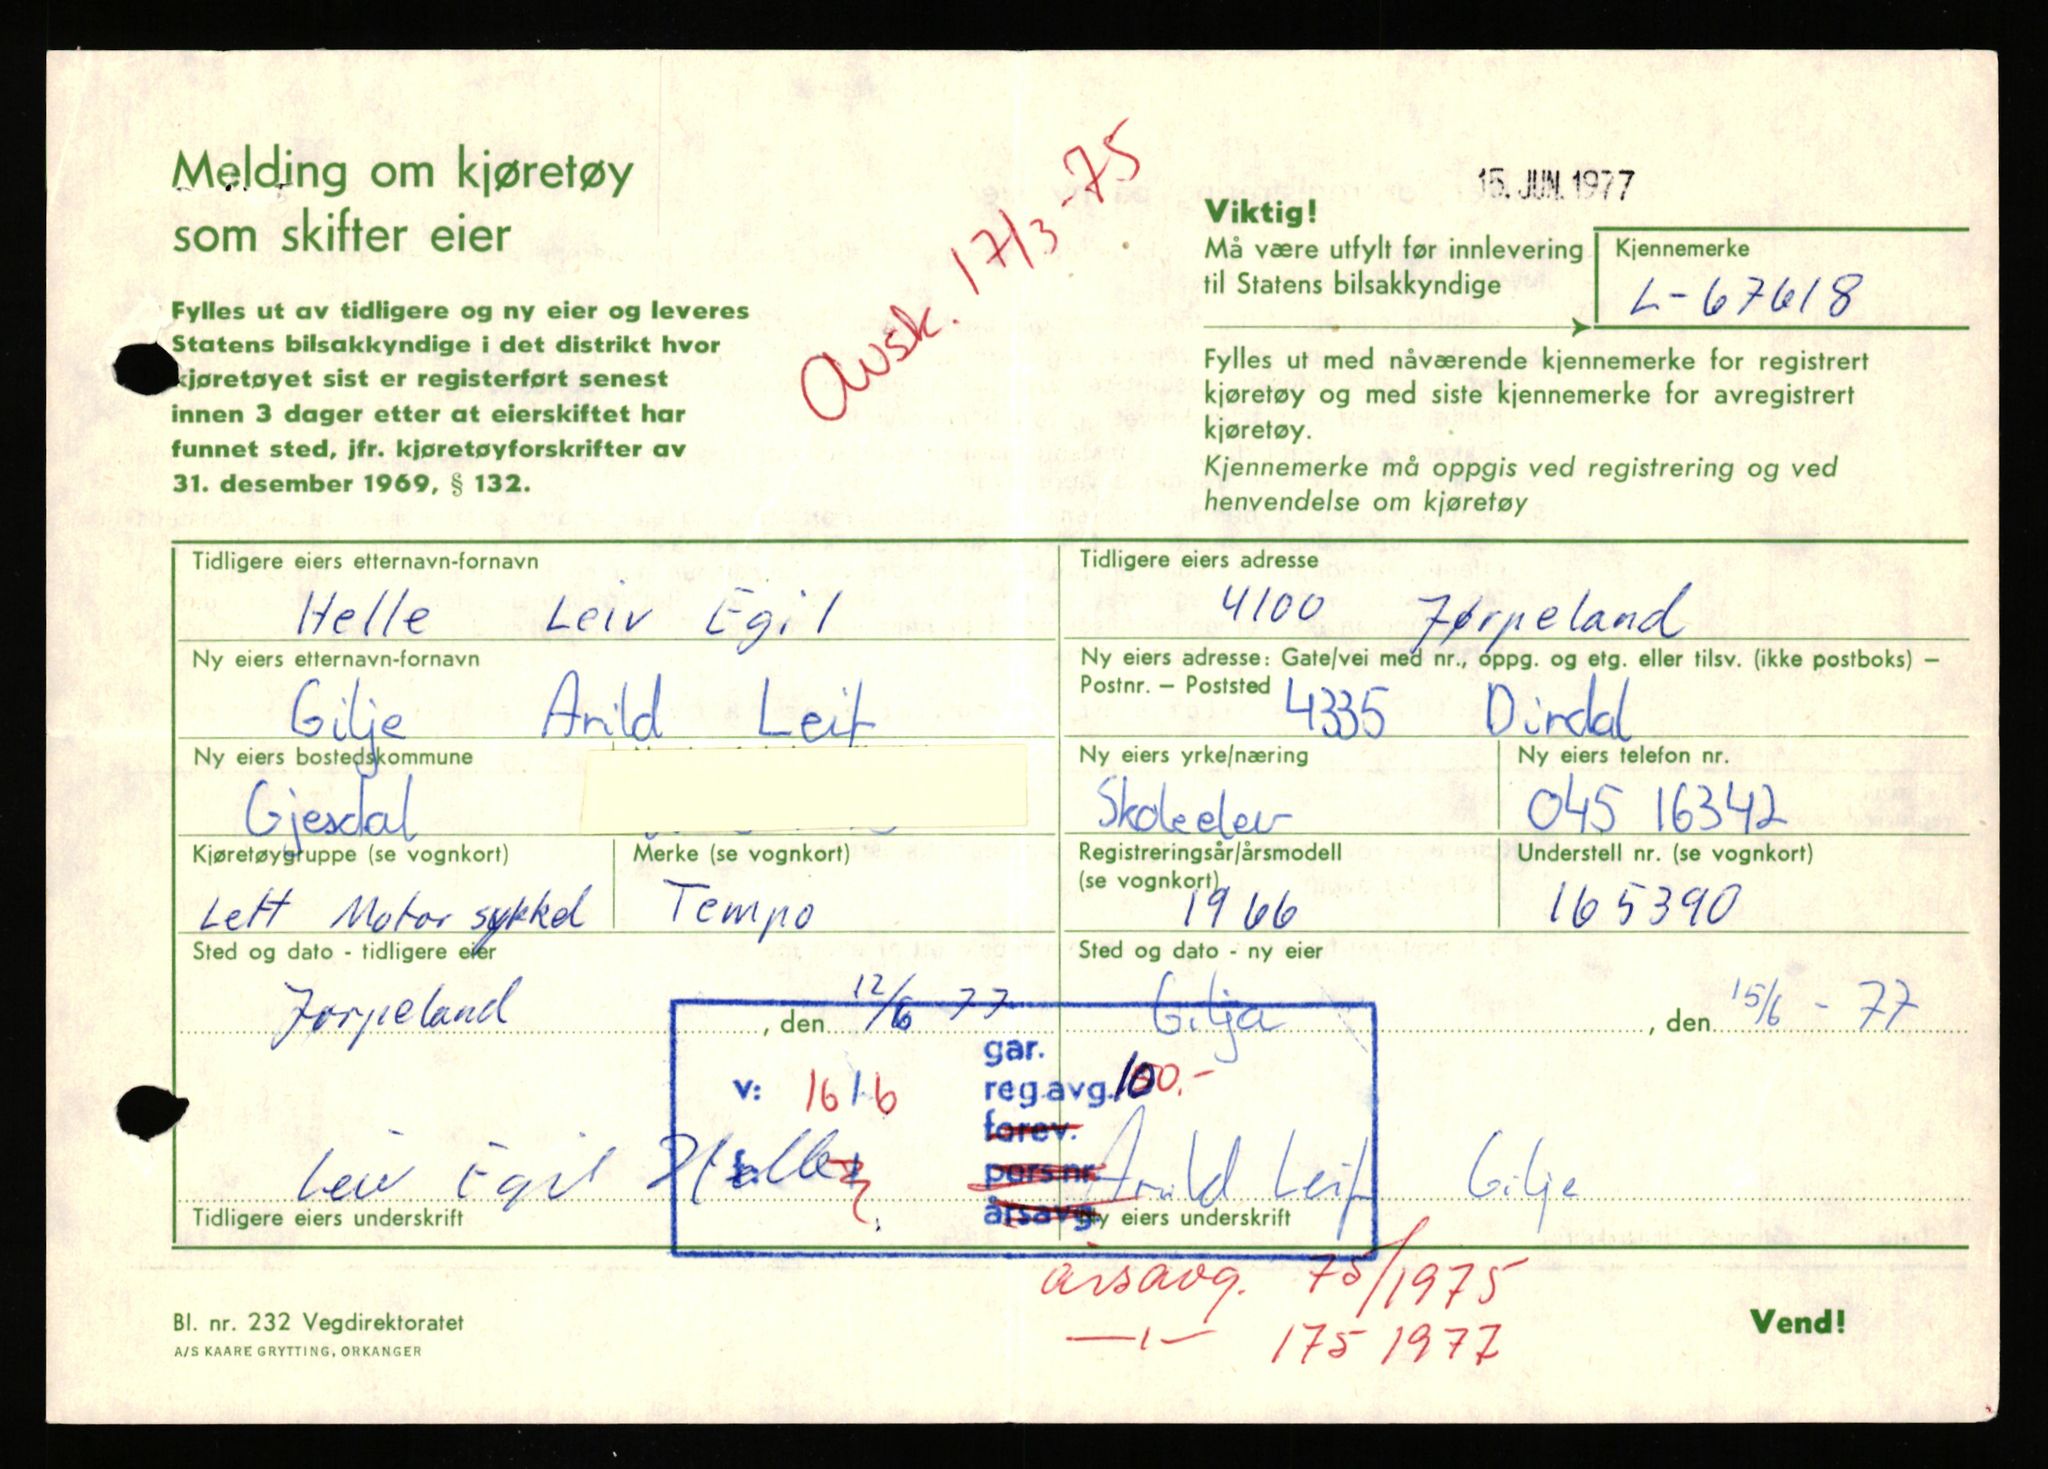 Melding om kjøretøy
som skifter eier
Fylles ut av tidligere og ny eier og leveres
Statens bilsakkyndige i det distrikt hvor
kjøretøyet sist er registerført senest
innen 3 dager etter at eierskiftet har
funnet sted, jfr. kjøretøyforskrifter av
31. desember 1969, § 132.
Avsk. 17/3-75
15. JUN. 1977
Viktig!
Må være utfylt før innlevering
til Statens bilsakkyndige
Kjennemerke
L-67618
Fylles ut med nåværende kjennemerke for registrert
kjøretøy og med siste kjennemerke for avregistrert
kjøretøy.
Kjennemerke må oppgis ved registrering og ved
henvendelse om kjøretøy
Tidligere eiers etternavn-fornavn
Helle Leiv Egil
Tidligere eiers adresse
4100 Jørpeland
Ny eiers etternavn-fornavn
Gilje Arild Leif
Ny eiers adresse: Gate/vei med nr., oppg. og etg. eller tilsv. (ikke postboks) –
Postnr. – Poststed 4335 Dirdal
Ny eiers bostedskommune
Gjesdal
Ny eiers yrke/næring
Skoleelev
Ny eiers telefon nr.
045 16342
Kjøretøygruppe (se vognkort)
Lett Motorsykkel
Merke (se vognkort)
Tempo
Registreringsår/årsmodell
(se vognkort)
1966
Understell nr. (se vognkort)
165390
Sted og dato - tidligere eier
Jørpeland, den 12/6 77
Sted og dato - ny eier
Gilja, den 15/6 - 77
gar.
v: 16/6 reg.avg. 100.-
forev.
pers.nr.
årsavg.
Leiv Egil Helle
Arild Leif Gilje
Tidligere eiers underskrift
Ny eiers underskrift
årsavg. 75/1975
—1— 175 1977
Bl. nr. 232 Vegdirektoratet
A/S KAARE GRYTTING, ORKANGER
Vend!